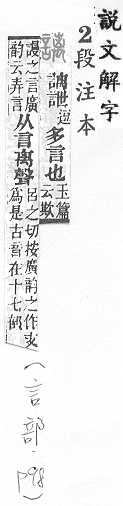 說文解字
2段注本
謧 謧詍逗多言也玉篇云欺
謾之言廣韵云弄言从言离聲呂之切按廣韵之作支爲是古音在十七部
(言部·P98)